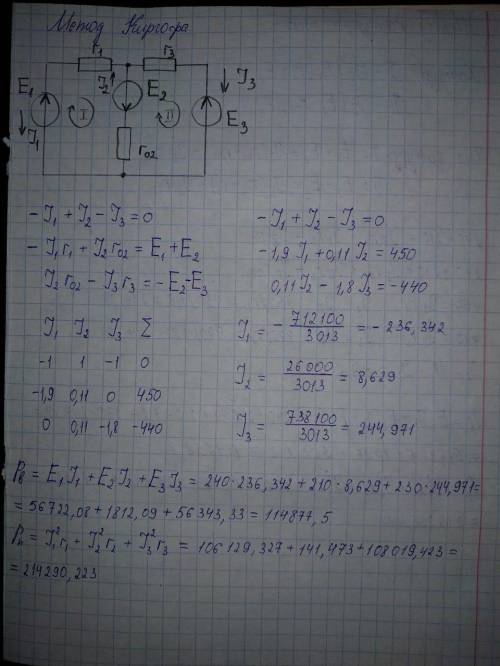 Метод Киргофа
r₁ r₃
E₁ J₂ E₂ J₃
J₁ I II E₃
r₀₂
-J₁ + J₂ - J₃ = 0
-J₁r₁ + J₂r₀₂ = E₁ + E₂
J₂r₀₂ - J₃r₃ = -E₂-E₃
-J₁ + J₂ - J₃ = 0
-1,9 J₁ + 0,11 J₂ = 450
0,11 J₂ - 1,8 J₃ = -440
J₁ J₂ J₃ Σ
-1 1 -1 0
-1,9 0,11 0 450
0 0,11 -1,8 -440
J₁ = - 712100/3013 = - 236,342
J₂ = 26000/3013 = 8,629
J₃ = 738100/3013 = 244,971
Pв = E₁J₁ + E₂J₂ + E₃J₃ = 240·236,342 + 210·8,629 + 230·244,971=
= 56722,08 + 1812,09 + 56343,33 = 114877,5
Pн = J₁²r₁ + J₂²r₂ + J₃²r₃ = 106129,327 + 141,473 + 108019,423 =
= 214290,223